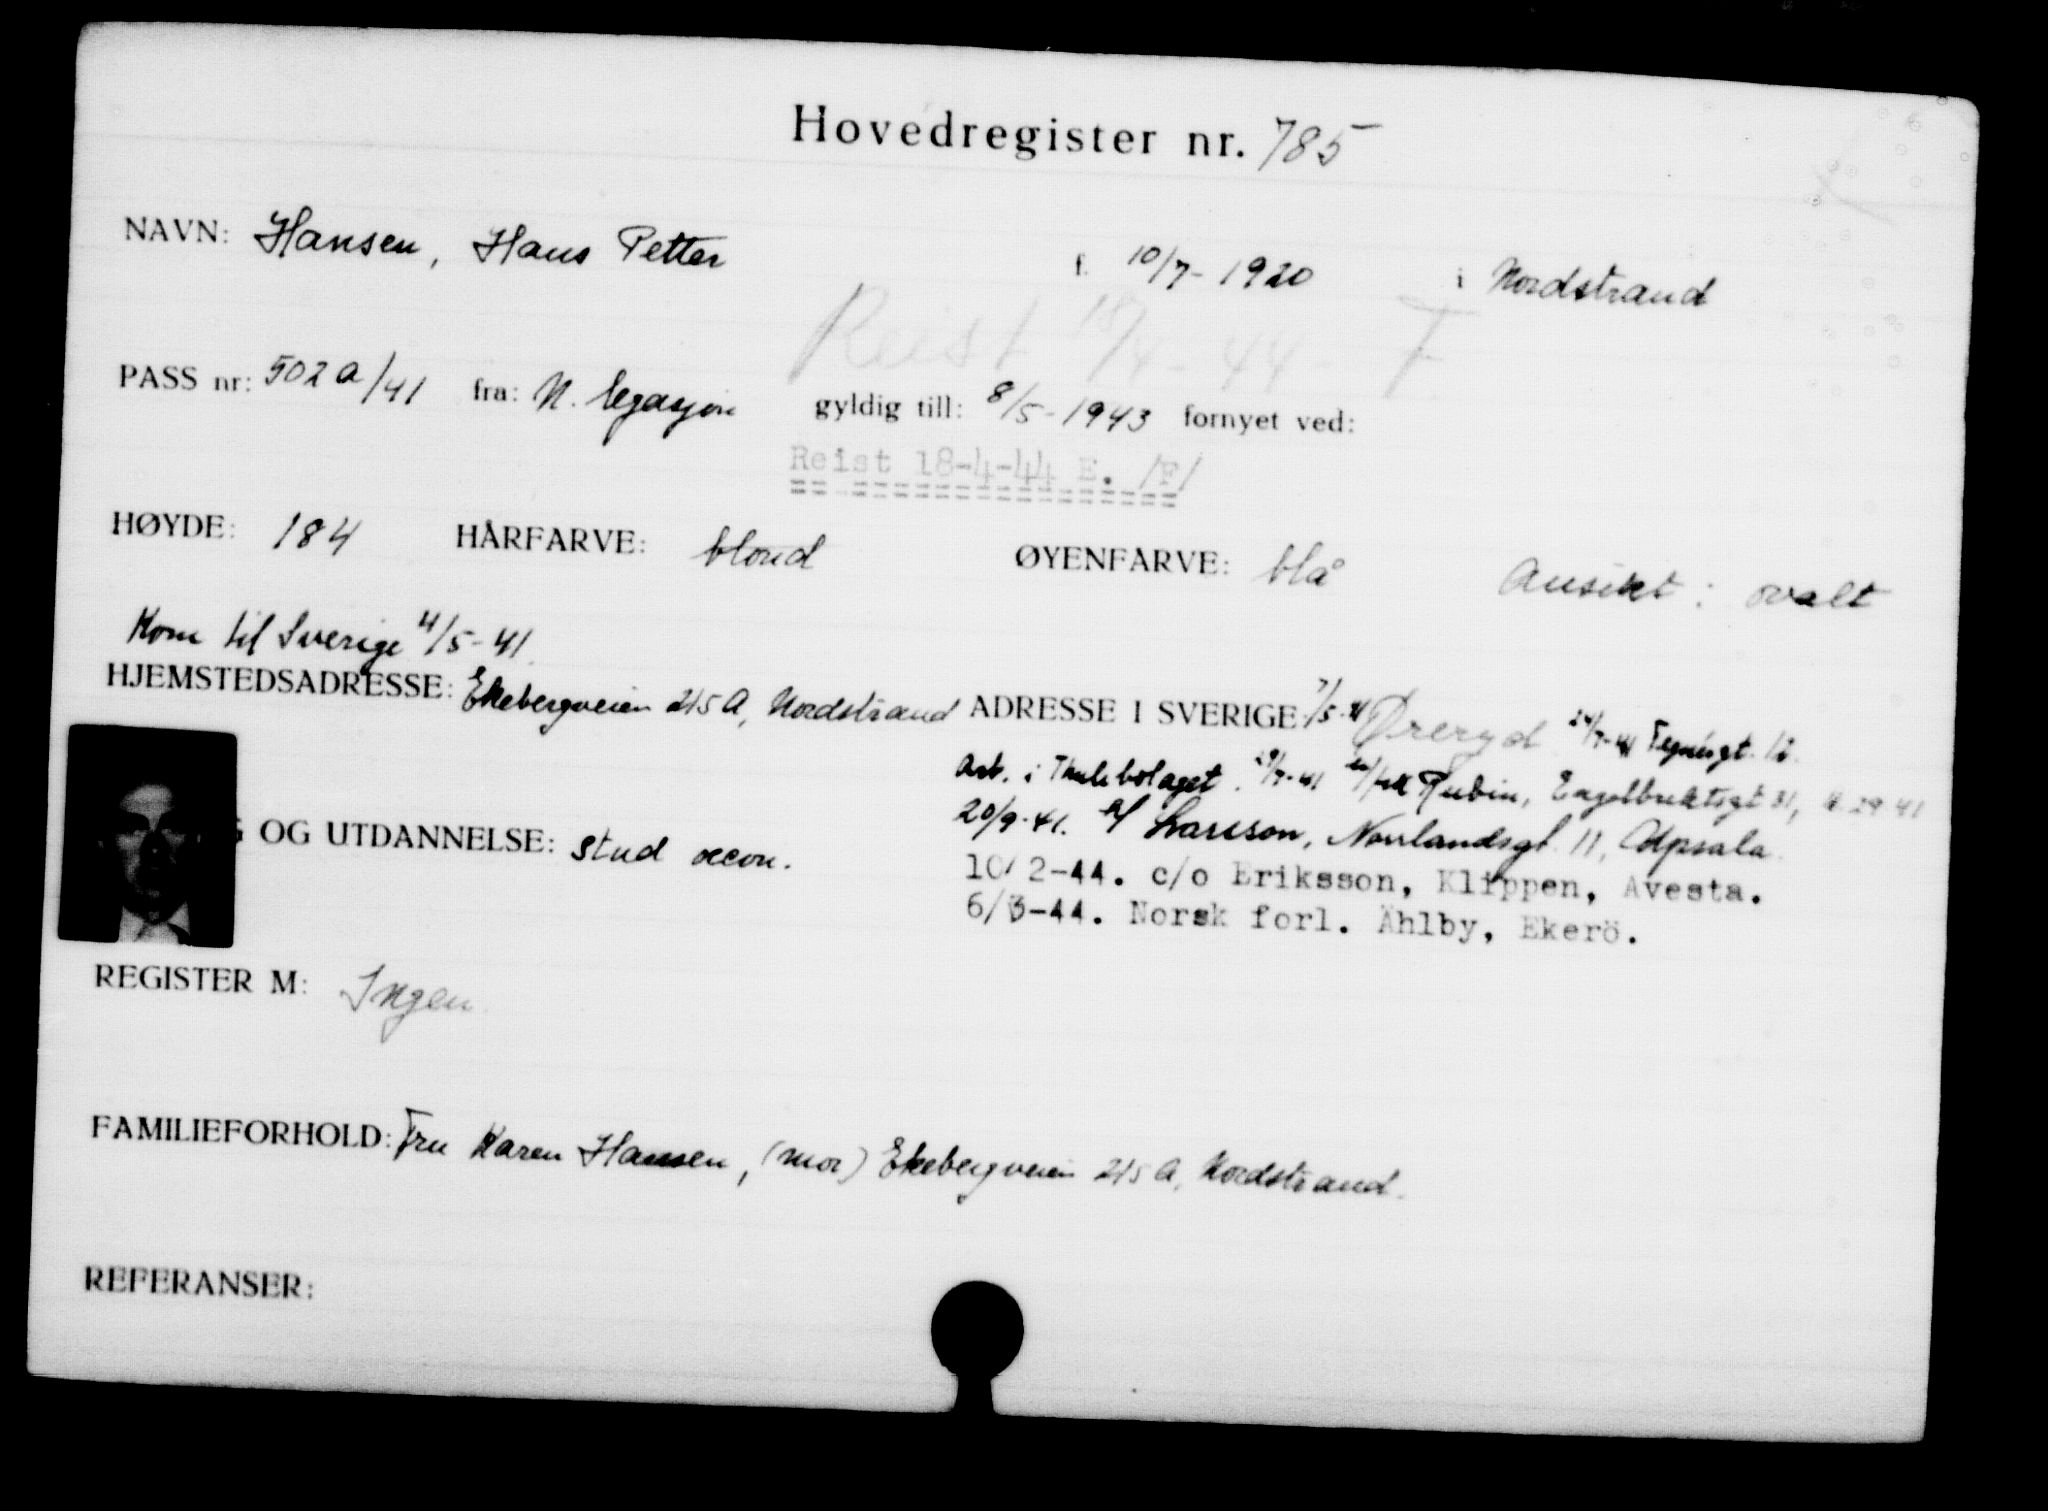 Hovedregister nr. 785
NAVN: Hansen, Hans Petter f. 10/7-1920 i Nordstrand
Reist 18/4-44 F
PASS nr: 502a/41 fra: N. legasjon gyldig till: 8/5-1943 fornyet ved:
Reist 18-4-44 E. /F/
HØYDE: 184 HÅRFARVE: blond ØYENFARVE: blå Ansikt: ovalt
Kom til Sverige 4/5-41.
HJEMSTEDSADRESSE: Ekebergveien 215A, Nordstrand ADRESSE I SVERIGE: 7/5-41 Øreryd 24/7-41
Arb. i Thulebolaget. Rubin,
G OG UTDANNELSE: stud oecon. 20/9-41. Larsson, Norrlandsgt. 11, Upsala.
10/2-44. c/o Eriksson, Klippen, Avesta.
6/3-44. Norsk forl. Åhlby, Ekerö.
REGISTER M: Ingen
FAMILIEFORHOLD: Fru Karen Hansen, (mor) Ekebergveien 215A, Nordstrand.
REFERANSER: